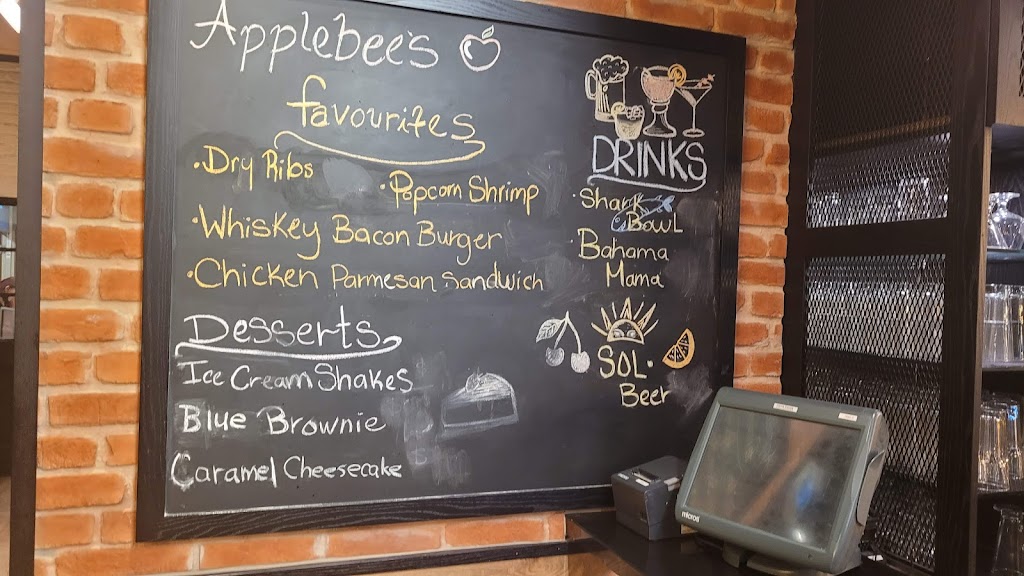 Applebee's
favourites
•Dry Ribs
•Popcorn Shrimp
•Whiskey Bacon Burger
•Chicken Parmesan Sandwich
Desserts
Ice Cream Shakes
Blue Brownie
Caramel Cheesecake
DRINKS
•Shark
Bowl
•Bahama
Mama
SOL•
Beer
micros